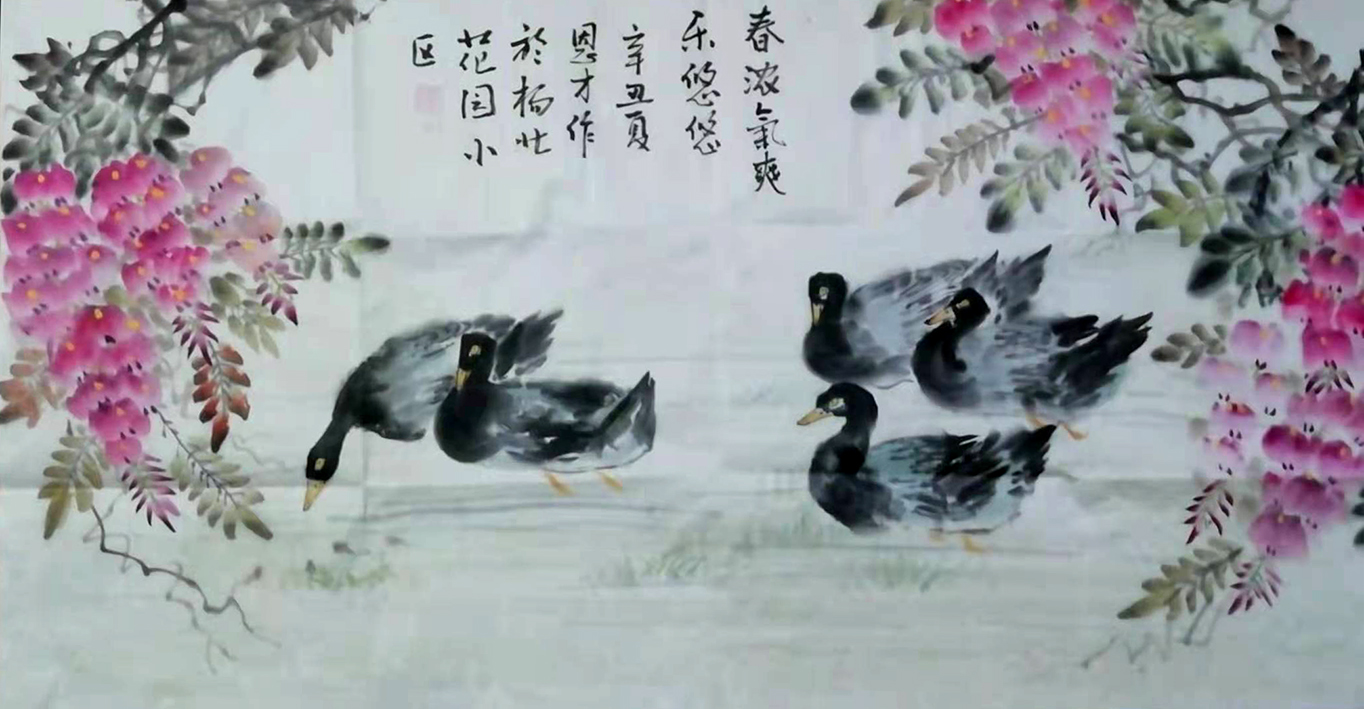 春浓氣爽
乐悠悠
辛丑夏
恩才作
於杨壮
花园小
区